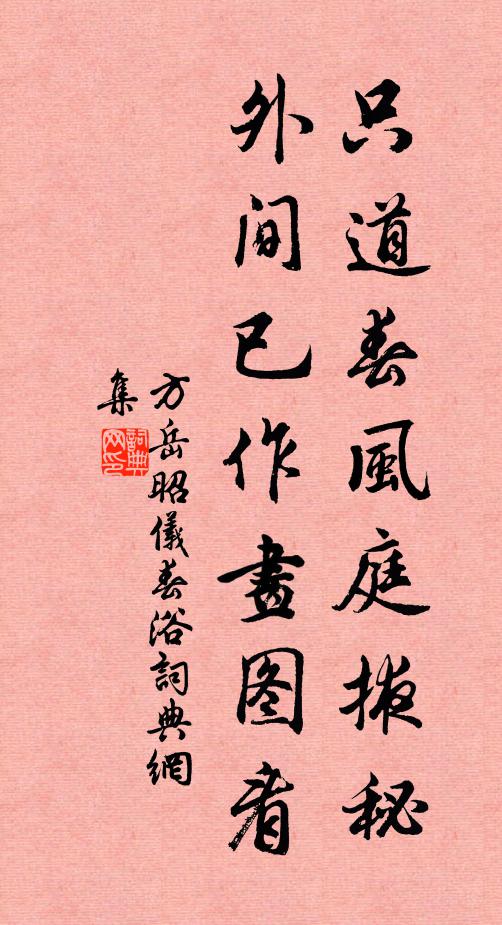 只道春風庭掖秘
外间已作畫图看
方岳昭儀春浴詞典網
集
詞典网印